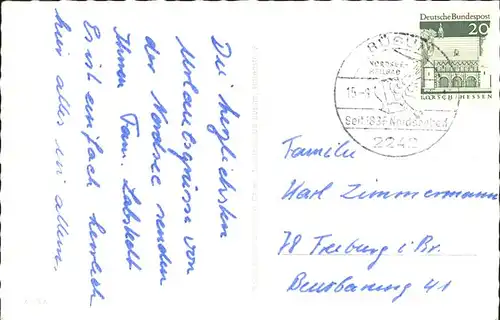 Die herzlichsten
Urlaubsgrüsse von
der Nordsee senden
Ihnen Fam. Labstedt
Es ist einfach herrlich
hier alles in allem.
Deutsche Bundespost
20
LORSCH/HESSEN
BÜSUM
NORDSEE-
HEILBAD
Seit 1837 Nordseebad
2242
Familie
Karl Zimmermann
78 Freiburg i. Br.
41